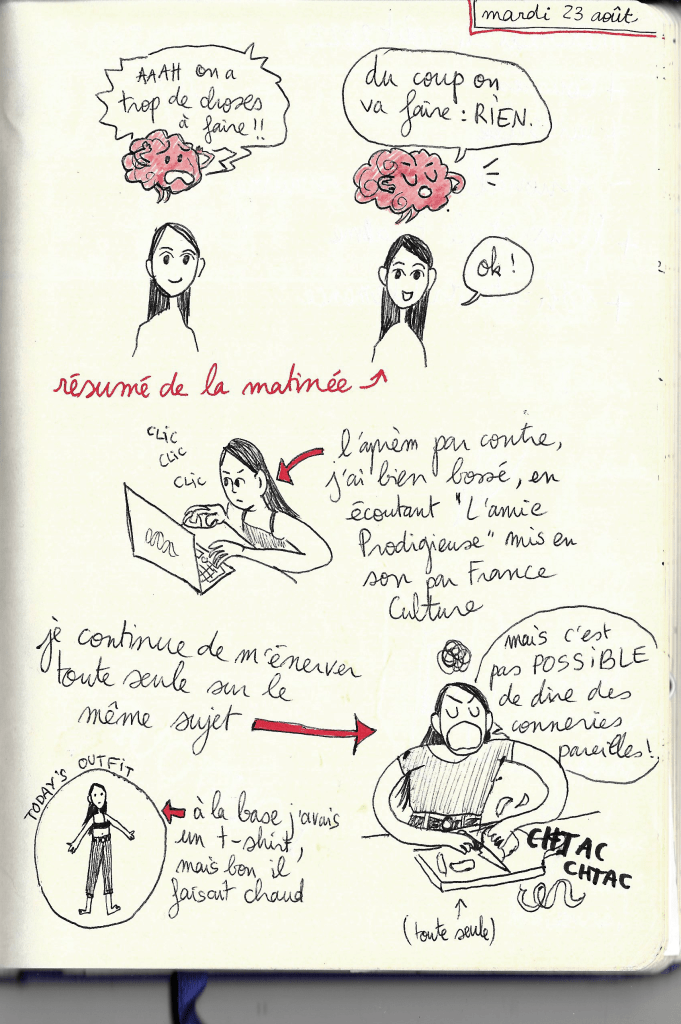 mardi 23 août
AAAH on a
trop de choses
à faire !!
du coup on
va faire : RIEN.
ok !
résumé de la matinée
CLIC
CLIC
CLIC
l'aprèm par contre,
j'ai bien bossé, en
écoutant "L'amie
Prodigieuse" mis en
son par France
Culture
je continue de m'énerver
toute seule sur le
même sujet
mais c'est
pas POSSIBLE
de dire des
conneries
pareilles !
CHTAC
CHTAC
(toute seule)
TODAY'S OUTFIT
à la base j'avais
un t-shirt,
mais bon il
faisait chaud